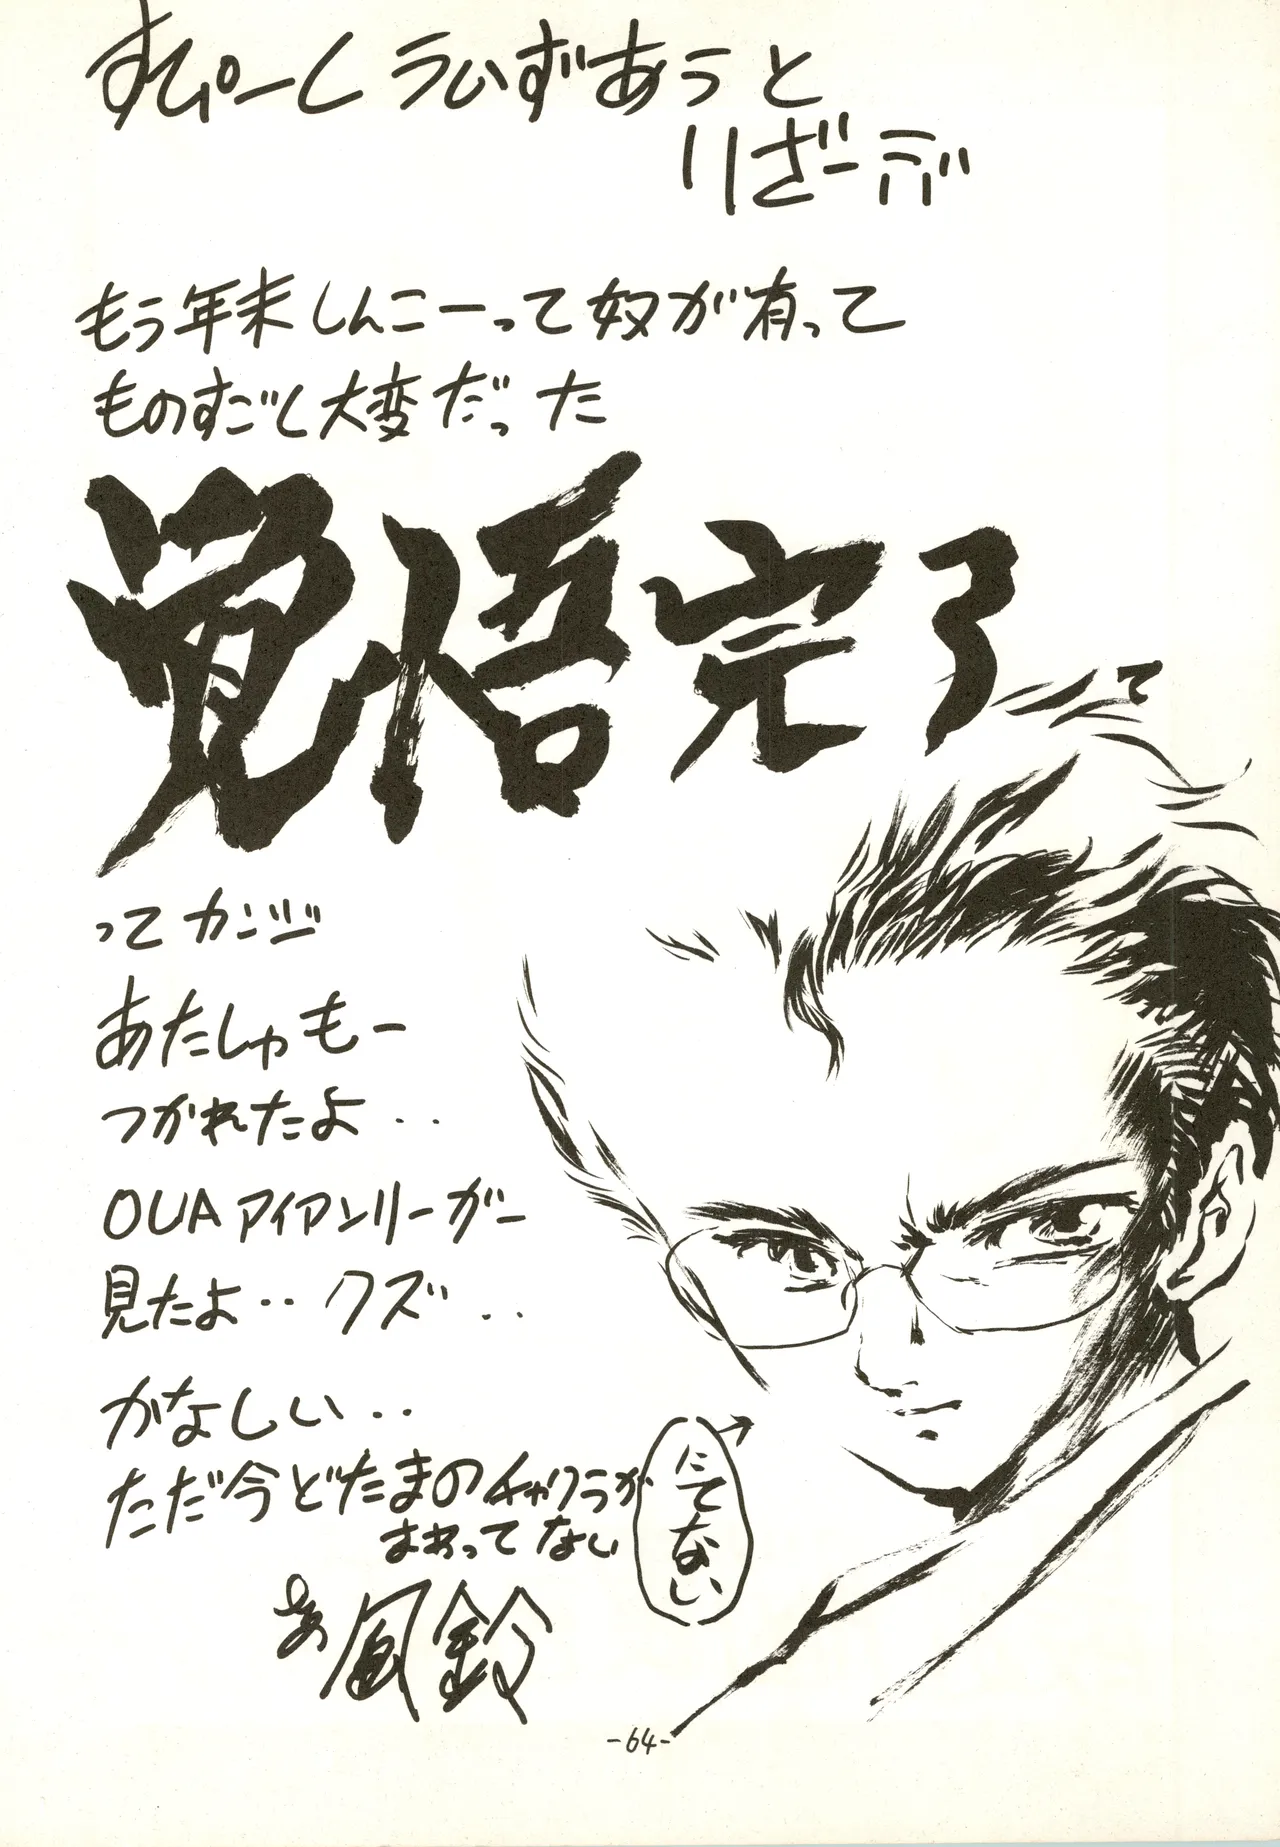 すぴーしうぃずあうと
りざーデ
もう年末しんこーって奴が有って
ものすごく大変だった
覚悟完了
って
ってカンジ
あたしゃもー
つかれたよ‥
OUAアイアンリーガー
見たよ‥クズ‥
かなしい‥
ただ今どたまのチャクラが
まわってない
にてない
風鈴
-64-